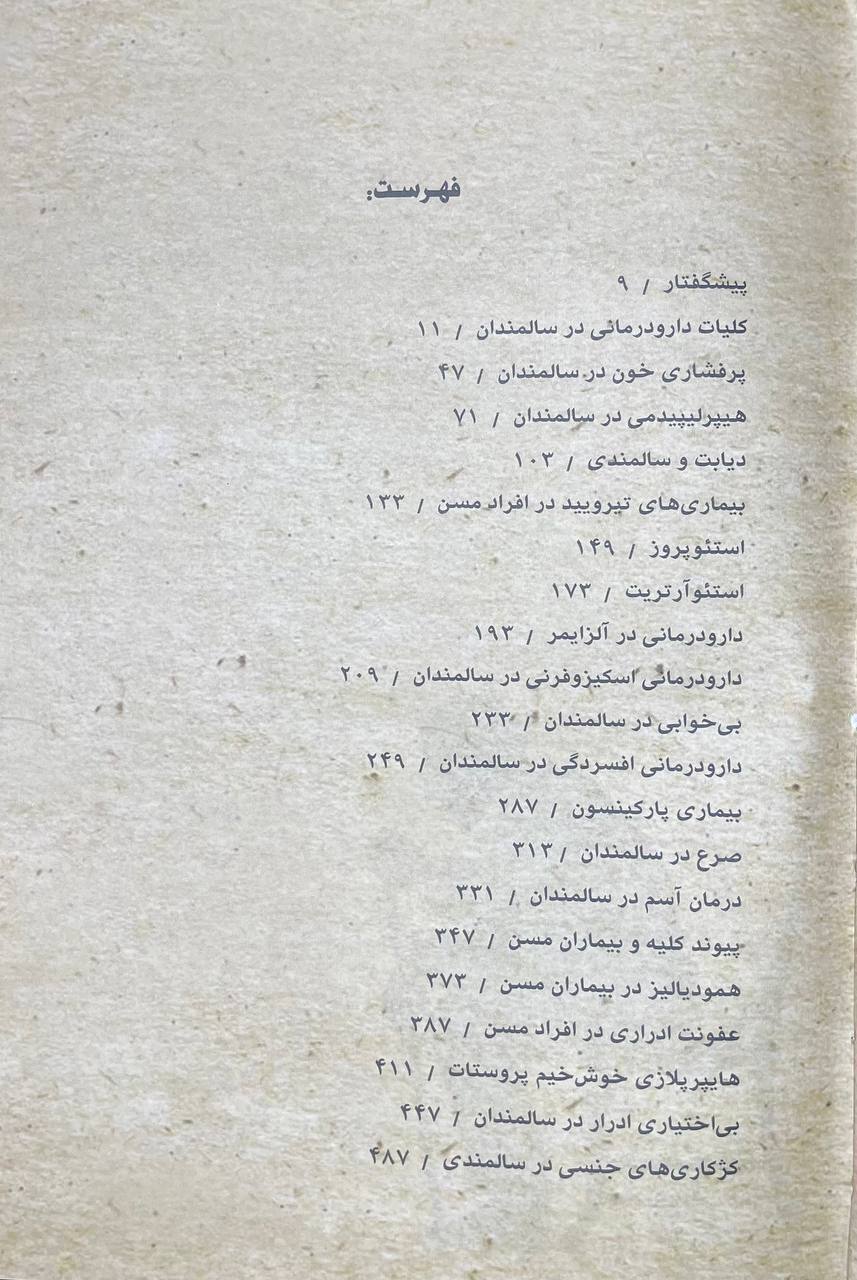 فهرست:
پیشگفتار / ۹
کلیات دارودرمانی در سالمندان / ۱۱
پرفشاری خون در سالمندان / ۴۷
هیپرلیپیدمی در سالمندان / ۷۱
دیابت و سالمندی / ۱۰۳
بیماری‌های تیرویید در افراد مسن / ۱۳۳
استئوپروز / ۱۴۹
استئوآرتریت / ۱۷۳
دارودرمانی در آلزایمر / ۱۹۳
دارودرمانی اسکیزوفرنی در سالمندان / ۲۰۹
بی‌خوابی در سالمندان / ۲۳۳
دارودرمانی افسردگی در سالمندان / ۲۴۹
بیماری پارکینسون / ۲۸۷
صرع در سالمندان / ۳۱۳
درمان آسم در سالمندان / ۳۳۱
پیوند کلیه و بیماران مسن / ۳۴۷
همودیالیز در بیماران مسن / ۳۷۳
عفونت ادراری در افراد مسن / ۳۸۷
هایپرپلازی خوش‌خیم پروستات / ۴۱۱
بی‌اختیاری ادرار در سالمندان / ۴۴۷
کژکاری‌های جنسی در سالمندی / ۴۸۷